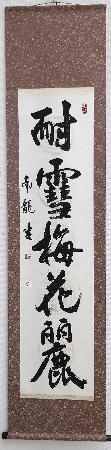 耐雪梅花麗
南龍書